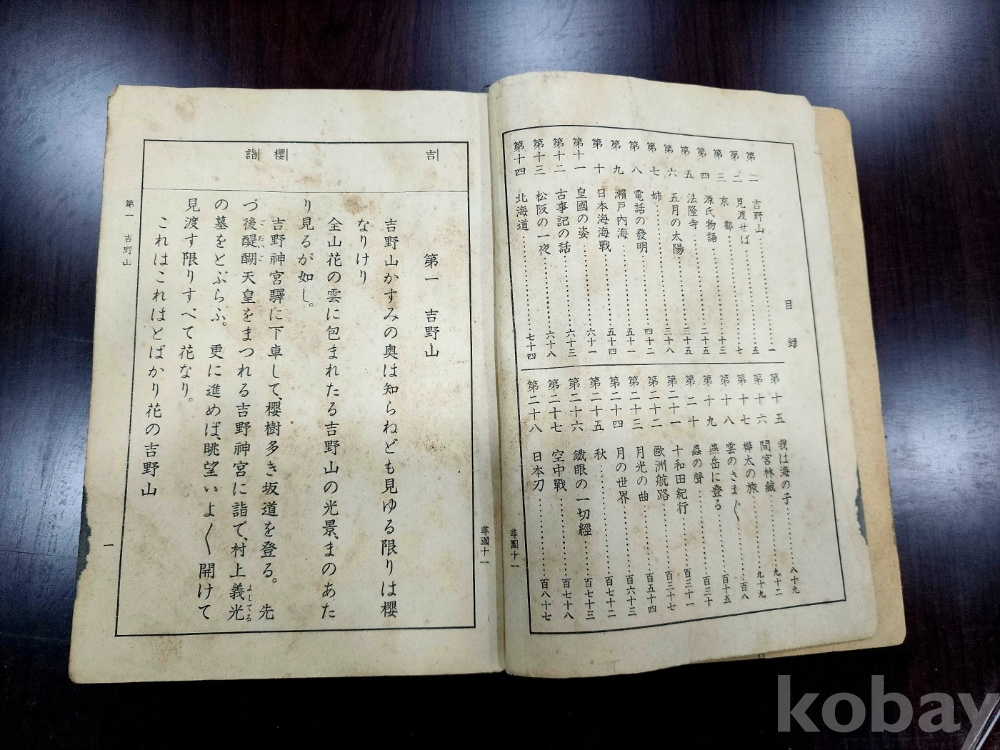 目錄
第一 吉野山 一
第二 見渡せば 五
第三 京都 七
第四 源氏物語
第五 法隆寺 二十五
第六 五月の太陽 三十五
第七 姉 三十八
第八 電話の發明 四十二
第九 瀨戸内海 五十一
第十 日本海海戰 五十四
第十一 皇國の姿 六十一
第十二 古事記の話 六十三
第十三 松阪の一夜 六十八
第十四 北海道 七十四
第十五 我は海の子 八十九
第十六 間宮林藏 九十二
第十七 樺太の旅 九十九
第十八 雲のさま〴〵 百八
第十九 燕岳に登る 百十五
第二十 蟲の聲 百三十
第二十一 十和田紀行 百三十一
第二十二 歐洲航路 百三十七
第二十三 月光の曲 百五十四
第二十四 月の世界 百六十三
第二十五 秋
第二十六 鐵眼の一切經 百七十三
第二十七 空中戰 百七十八
第二十八 日本刀 百八十七
尋國十一
尋國十一
吉
櫻
詣
第一 吉野山
吉野山かすみの奥は知らねども見ゆる限りは櫻
なりけり
全山花の雲に包まれたる吉野山の光景、まのあた
り見るが如し。
吉野神宮驛に下車して、櫻樹多き坂道を登る。先
づ後醍醐天皇をまつれる吉野神宮に詣で、村上義光
ごだいご
よしてる
の墓をとぶらふ。更に進めば、眺望いよ〳〵開けて
見渡す限りすべて花なり。
これはこれはとばかり花の吉野山
第一 吉野山
一
kobay